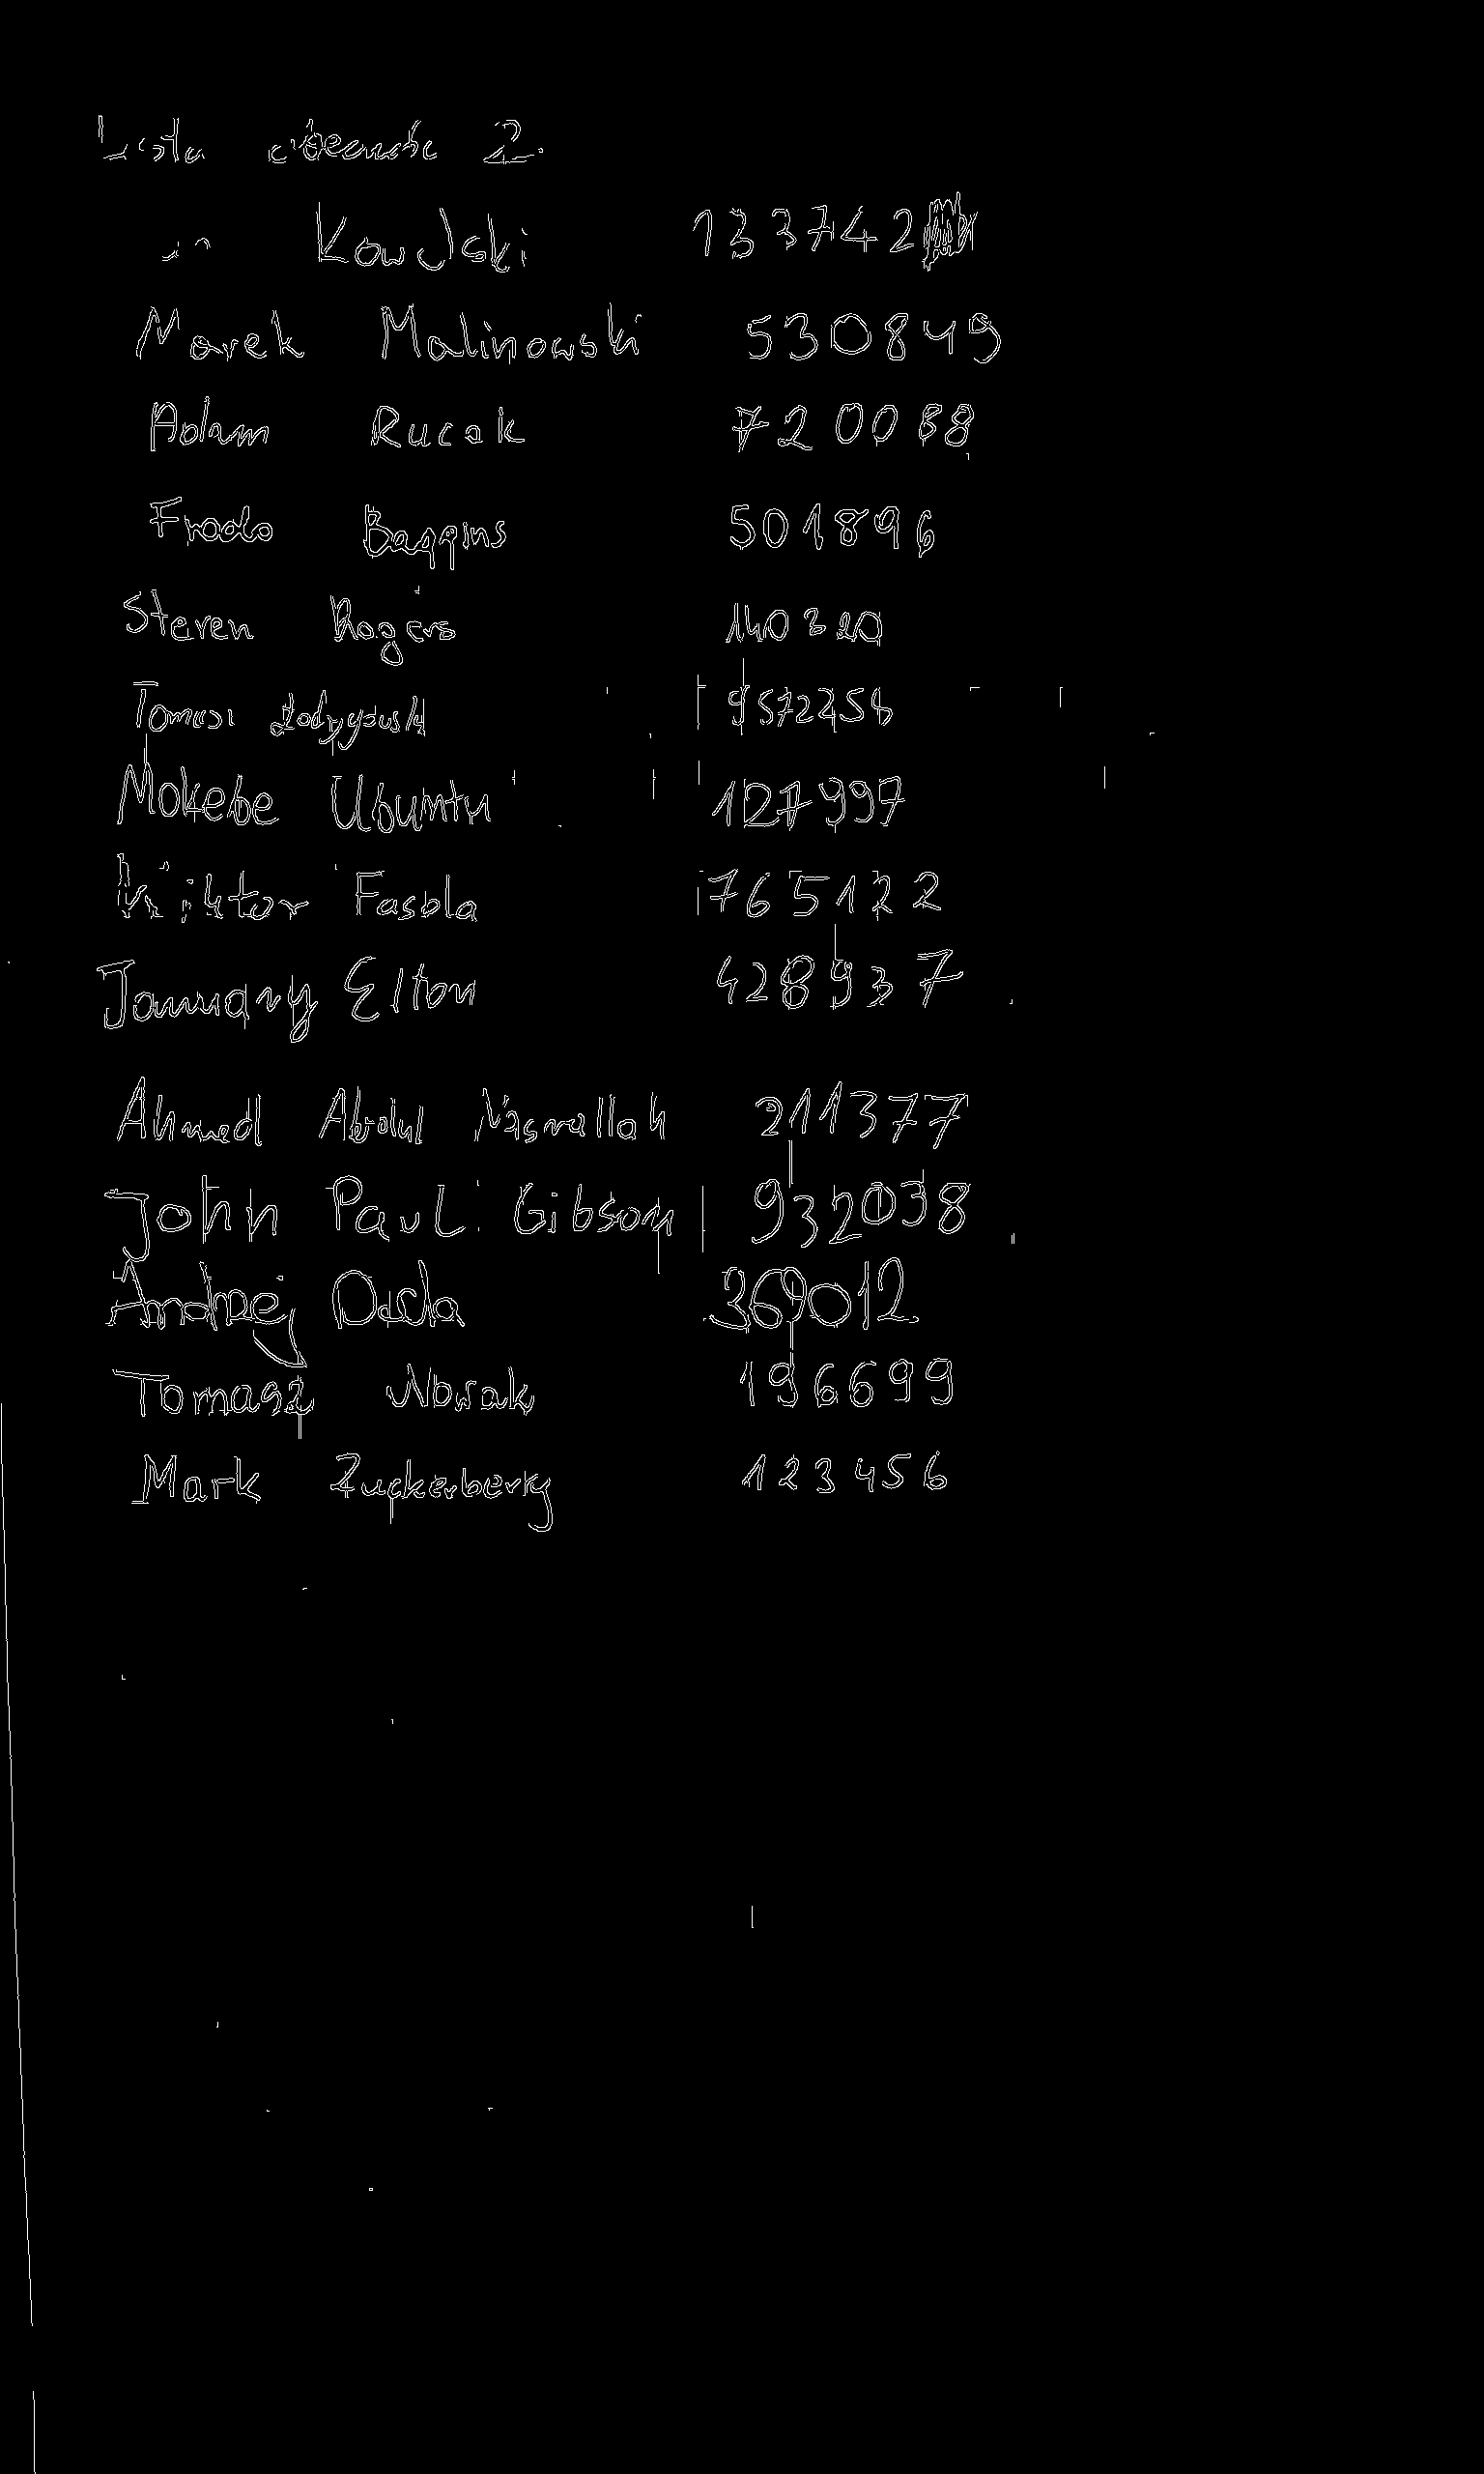 Lista obecności 2.
Kowalski 133742
Marek Malinowski 530849
Adam Rucak 720088
Frodo Baggins 501896
Steven Rogers 140320
Tomasz
Mokebe Ubuntu 127997
Wiktor Fasola 765122
January Elton 428937
Ahmed Abdul Nasrallah 211377
John Paul Gibson 932038
Andrzej Duda 369012
Tomasz Nowak 196699
Mark Zuckerberg 123456